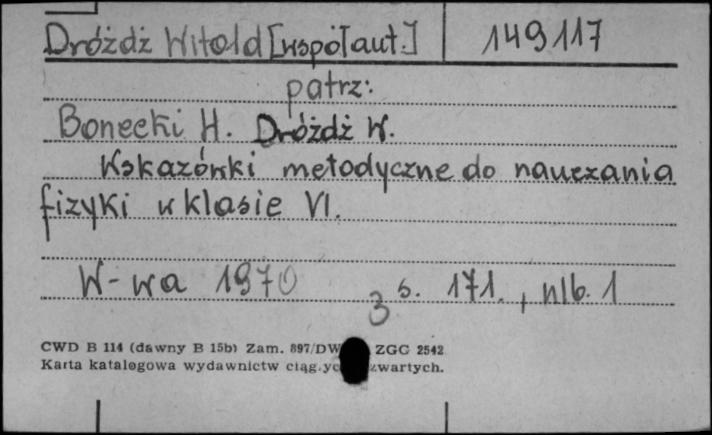 Dróżdż Witold [współaut.] 149117
patrz:
Bonecki H. Dróżdż W.
Wskazówki metodyczne do nauczania
fizyki w klasie VI.
W-wa 1970 3 s. 171., nlb. 1
CWD B 114 (dawny B 15b) Zam. 897/DW ZGG 2542
Karta katalogowa wydawnictw ciąg.yc zwartych.